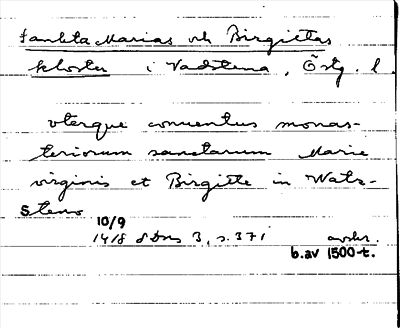 Sankta Marias och Birgittas
kloster i Vadstena, Östg. l.
vterque conuentus monas-
teriorum sanctarum Marie
virginis et Birgitte in Watz-
Steno
10/9
1418 SDns 3, s. 371 avskr.
b. av 1500-t.